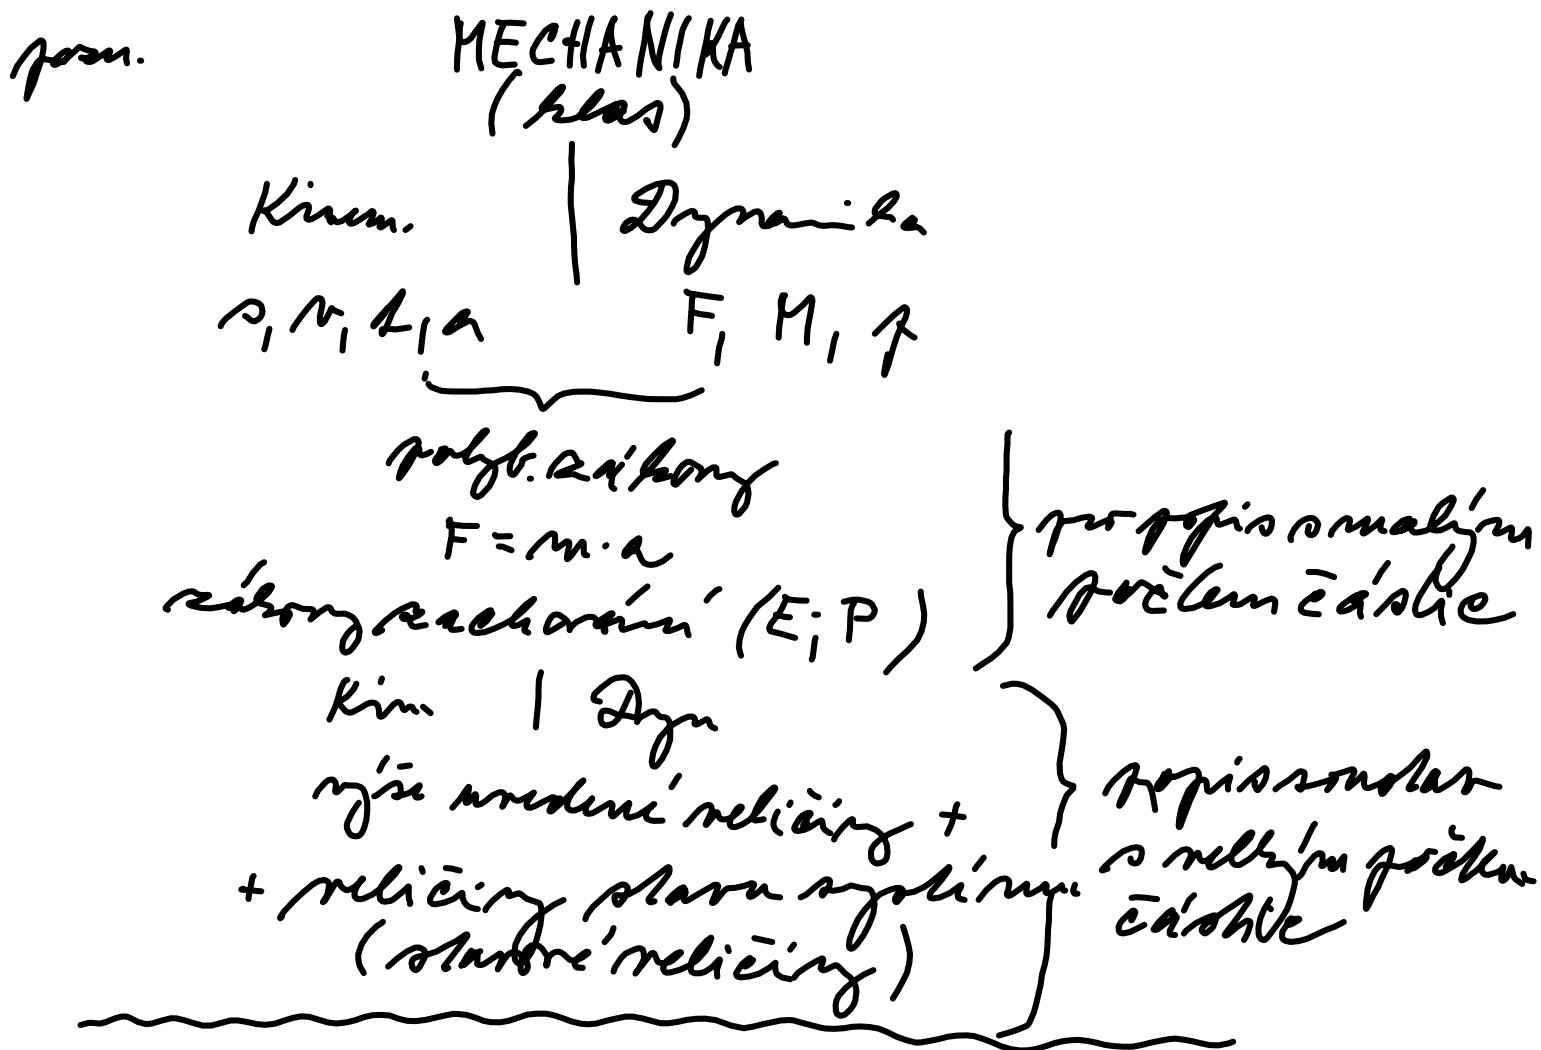 pozn.
MECHANIKA
(klas)
Kinem. | Dynamika
s, v, t, a F, M, p
pohyb. zákony
F = m · a
zákony zachování (E; P)
pro popis s malým
počtem částic
Kin. | Dyn
výše uvedené veličiny +
+ veličiny stavu systému
(stavové veličiny)
popis soustav
s velkým počtem
částic